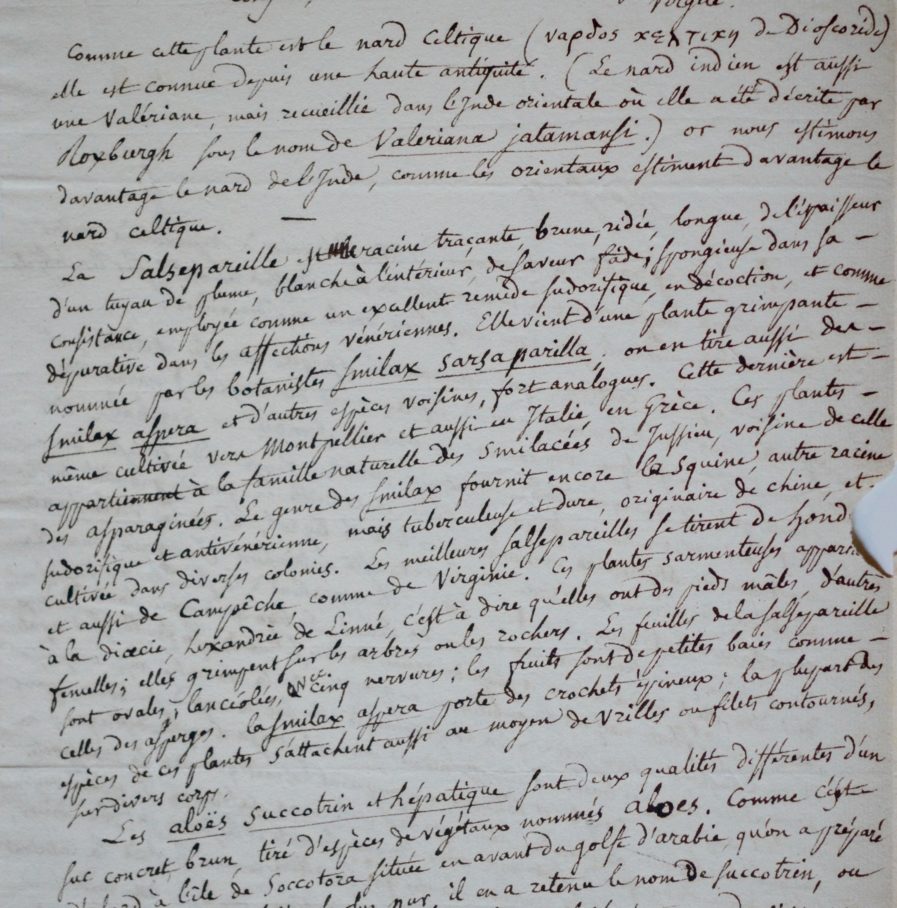 Virgile.
Comme cette plante est le nard Celtique (ναρδος κελτικη de Dioscoride)
elle est connue depuis une haute antiquité. (Le nard indien est aussi
une Valériane, mais recueillie dans l'Inde orientale où elle a été décrite par
Roxburgh sous le nom de Valeriana jatamansi.) or nous estimons
davantage le nard de l'Inde, comme les orientaux estiment davantage le
nard celtique. —
La Salsepareille est une racine traçante, brune, ridée, longue, de l'épaisseur
d'un tuyau de plume, blanche à l'intérieur, de saveur fade, spongieuse dans sa
consistance, employée comme un excellent remede sudorifique, en décoction, et comme
dépurative dans les affections vénériennes. Elle vient d'une plante grimpante
nommée par les botanistes smilax sarsaparilla; on en tire aussi des
smilax aspera et d'autres espèces voisines, fort analogues. Cette dernière est
même cultivée vers Montpellier et aussi en Italie, en Grèce. Ces plantes
appartiennent à la famille naturelle des smilacées de Jussieu, voisine de celle
des asparaginées. Le genre des smilax fournit encore la squine, autre racine
sudorifique et antivénérienne, mais tuberculeuse et dure, originaire de chine, et
cultivée dans diverses colonies. Les meilleures salsepareilles se tirent de hond
et aussi de Campêche, comme de Virginie. Ces plantes sarmenteuses appar
à la diœcie, hexandrie de Linné, c'est à dire qu'elles ont des pieds mâles, d'autres
femelles; elles grimpent sur les arbres ou les rochers. Les feuilles de la salsepareille
sont ovales, lancéolés, cinq nervures; les fruits sont de petites baies comme
celles des asperges. la smilax aspera porte des crochets épineux; la plupart des
espèces de ces plantes s'attachent aussi au moyen de vrilles ou filets contournés,
sur divers corps.
Les aloës succotrin et hépatique sont deux qualités différentes d'un
suc concret, brun, tiré d'espèces de végétaux nommés aloes. Comme c'est
à l'île de Soccotora située en avant du golfe d'arabie, qu'on a préparé
pur, il en a retenu le nom de succotrin, ou